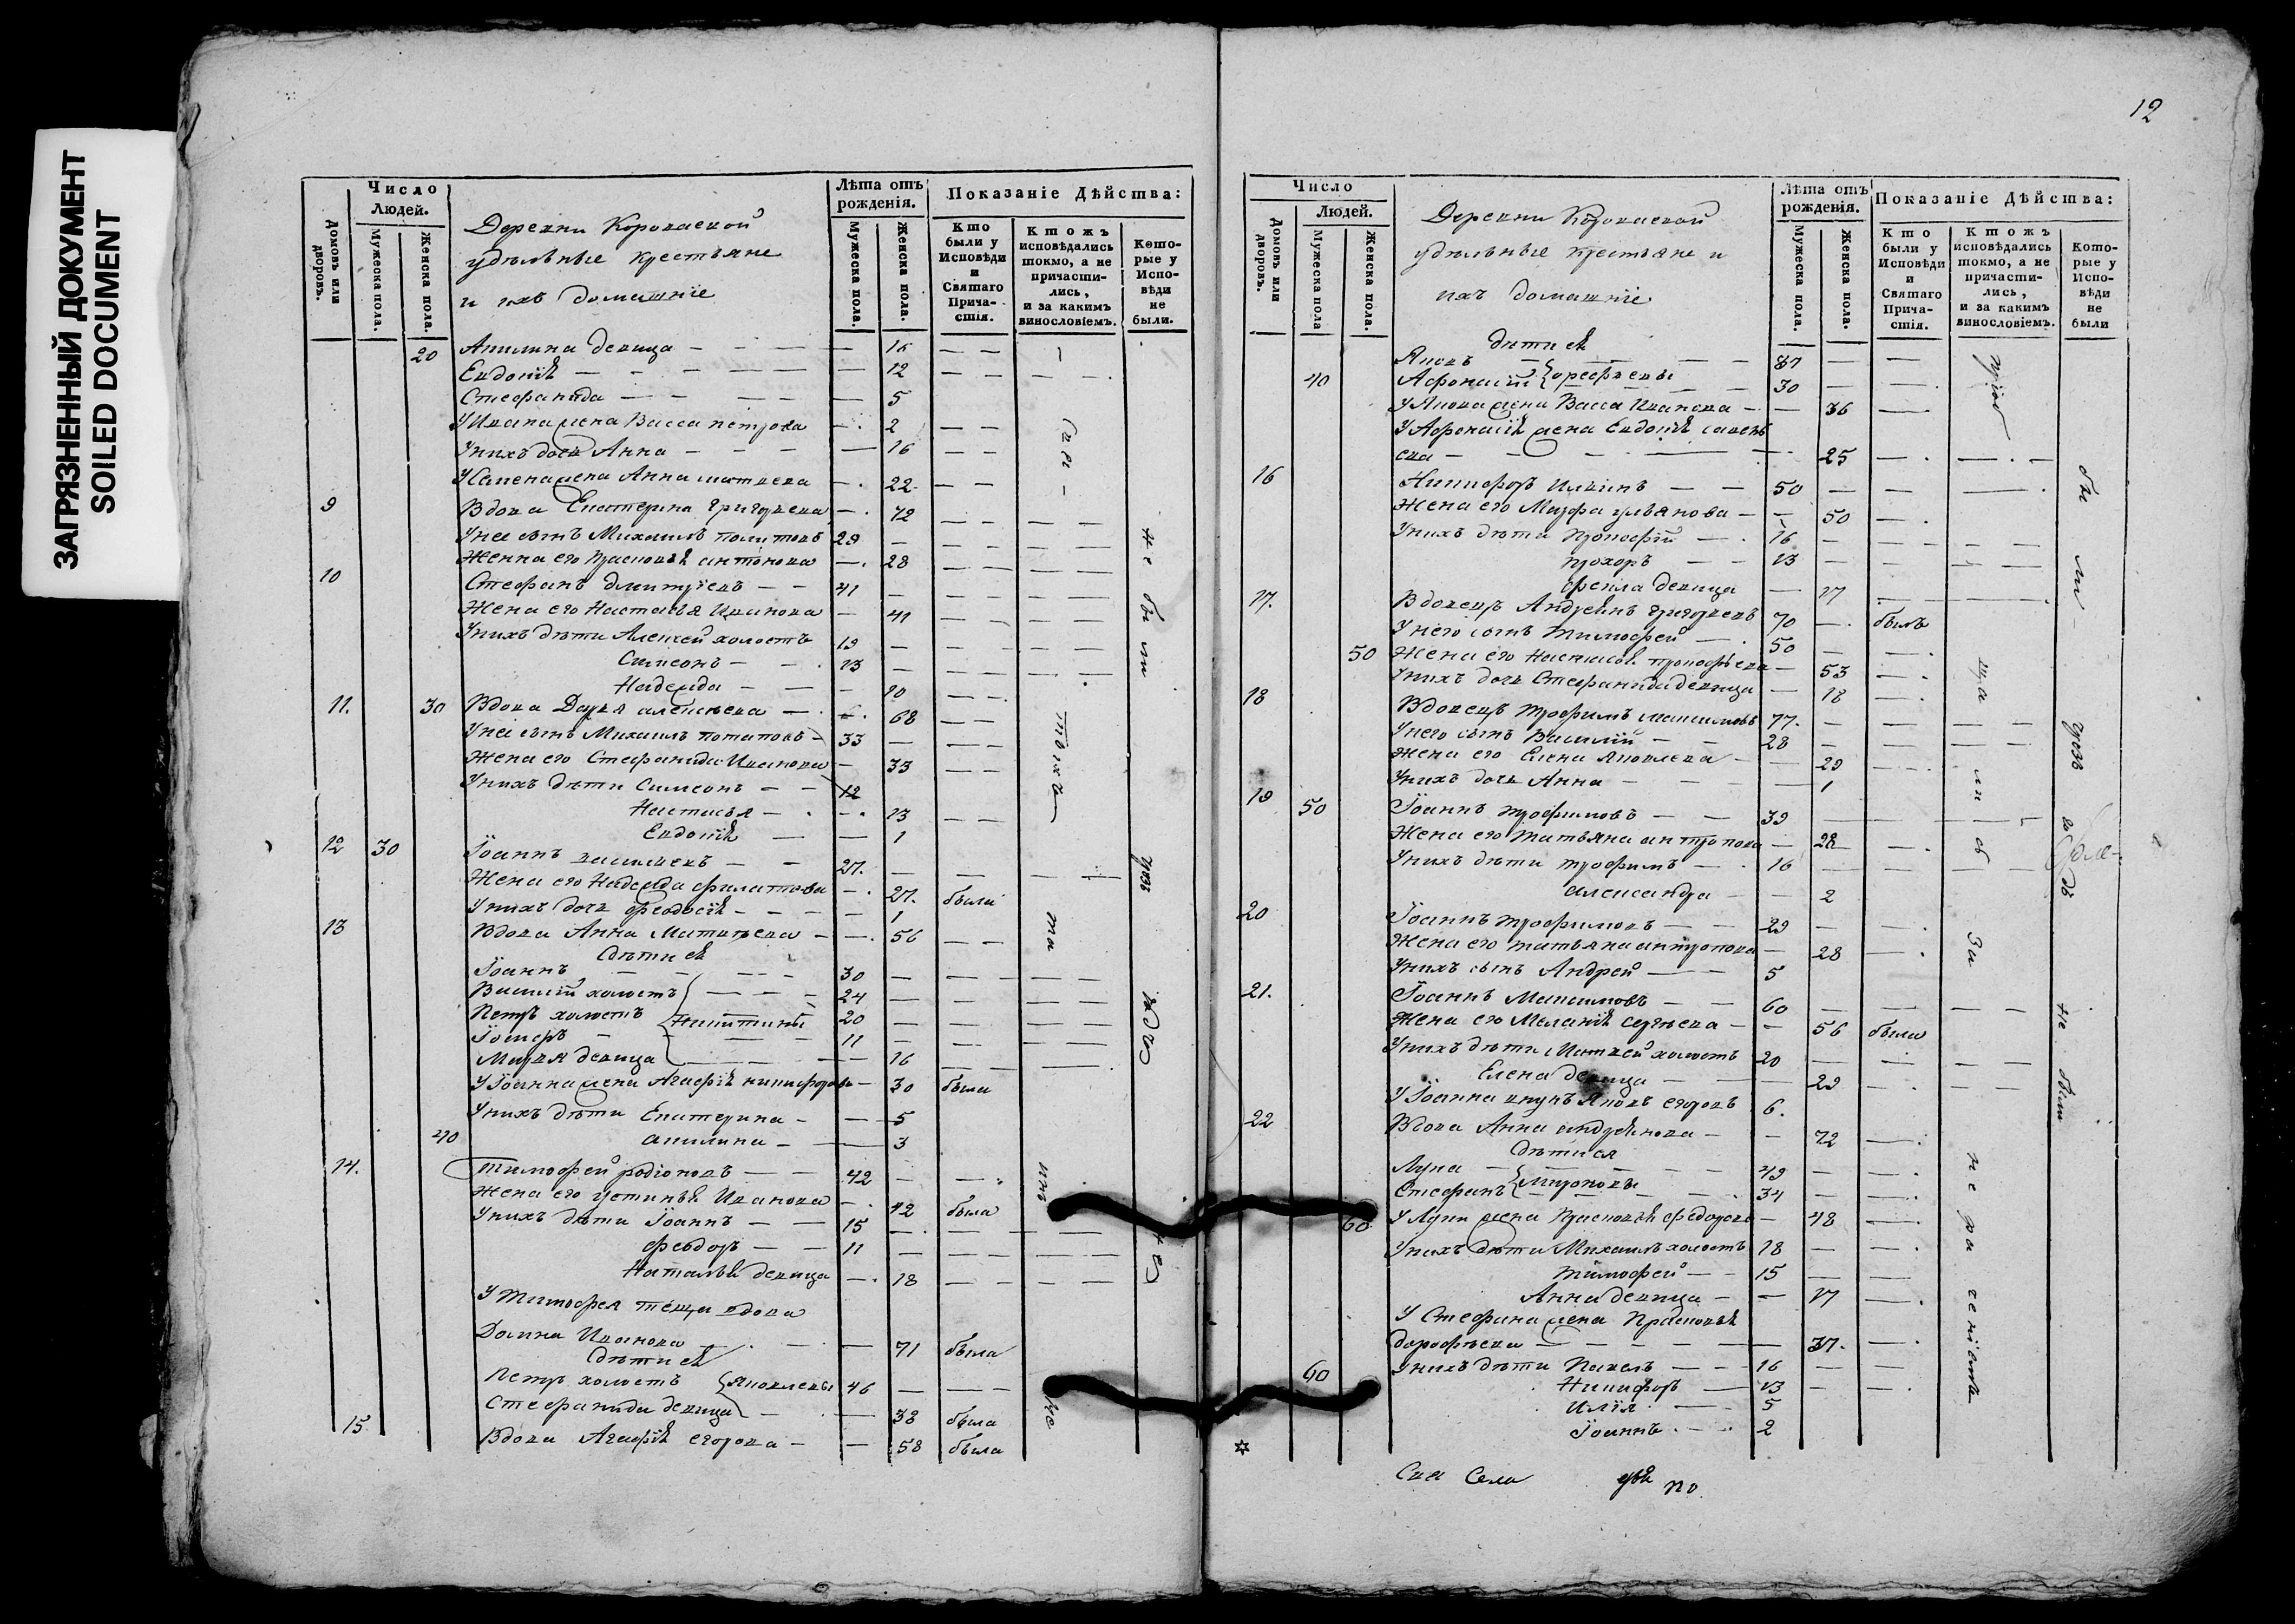 ЗАГРЯЗНЕННЫЙ ДОКУМЕНТ
SOILED DOCUMENT
Число
Людей.
Домовъ или дворовъ.
Мужеска пола.
Женска пола.
Деревни
удѣльные крестьяне
и ихъ домашніе
Лѣта отъ рожденія.
Мужеска пола.
Женска пола.
Показаніе Дѣйства:
Кто были у Исповѣди и Святаго Причастія.
Ктожъ исповѣдались токмо, а не причастились, и за какимъ винословіемъ.
Которые у Исповѣди не были.
20 Акилина девица 15
Евдокія 12
Стефанида 5
У Ивана жена Васса петрова 2
У нихъ дочь Анна 16
жена Анна 22
9 Вдова Екатерина Григорьева 72
У нея сынъ Михаилъ 29
Женна его Прасковья антонова 28
10 Стефанъ Дмитріевъ 41
Жена его Настасья Иванова 41
У нихъ дѣти Алексей холостъ 19
Симеонъ 13
Надежда 10
11. 30 Вдова Дарья алексѣева 68
У нея сынъ Михаилъ потаповъ 33
Жена его Стефанида Иванова 33
У нихъ дѣти Симеонъ 12
Настасья 13
Евдокія 1
12 30 Іоаннъ васильевъ 27.
Жена его Надежда филатова 27. была
У нихъ дочь феодосія 1
13 Вдова Анна Матвѣева 56
Дѣти ея
Іоаннъ 30
Василій холостъ 24
Петръ холостъ Никитины 20
Іосифъ 11
Марья девица 16
У Іоанна жена Агафія никифорова 30 была
У нихъ дѣти Екатерина 5
40 акилина 3
14. Тимофей родіоновъ 42
Жена его устинья Иванова 42 была
У нихъ дѣти Іоаннъ 15
феодоръ 11
Наталья девица 18
У Тимофея теща вдова
Домна Иванова 71 была
Дѣти ея
Петръ холостъ Яковлевы 46
Стефанида девица 38 была
15 Вдова Агафія егорова 58 была
не были
12
Число
Людей.
Домовъ или дворовъ.
Мужеска пола
Женска пола.
Деревни
удѣльные крестьяне и
ихъ домашніе
Лѣта отъ рожденія.
Мужеска пола.
Женска пола.
Показаніе Дѣйства:
Кто были у Исповѣди и Святаго Причастія.
Ктожъ исповѣдались токмо, а не причастились, и за какимъ винословіемъ.
Которые у Исповѣди не были
дѣти ея
Яковъ 37
40 Афонасій 30
У Якова жена Васса Иванова 36
У Афонасія жена Евдокія савель
ева 25
16 Никифоръ 50
Жена его Марфа ульянова 50
У нихъ дѣти Прокофій 16
прохоръ 13
фекла девица 17
17. Вдовецъ Андреянъ григорьевъ 70 былъ
У него сынъ Тимофей 50
50 Жена его Настасья прокофьева 53
У нихъ дочь Стефанида девица 18
18 Вдовецъ трофимъ максимовъ 77.
У него сынъ Василій 28
Жена его Елена Яковлева 29
У нихъ дочь Анна 1
19 50 Іоаннъ трофимовъ 39
Жена его татьяна антропова 28
У нихъ дѣти трофимъ 16
александра 2
20 Іоаннъ трофимовъ 29
Жена его татьяна антропова 28
У нихъ сынъ Андрей 5
21. Іоаннъ Максимовъ 60
Жена его Меланія сергѣева 56 была
У нихъ дѣти Матвей холостъ 20
Елена девица 29
У Іоанна внукъ Яковъ егоровъ 6.
22 Вдова Анна андреянова 72
Дѣти ея
Лука 49
Стефанъ Мироновы 34
60 У Луки жена Прасковья федорова 48
У нихъ дѣти Михаилъ холостъ 18
тимофей 15
Анна девица 17
У Стефана жена Прасковья
дорофѣева 37.
60 У нихъ дѣти Павелъ 16
Никифоръ 13
Илія 5
Іоаннъ 2
За нераченіемъ
не были
Села
по